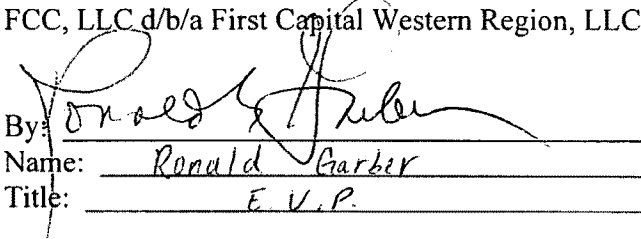 FCC, LLC d/b/a First Capital Western Region, LLC
By: Ronald Garber
Name: Ronald Garber
Title: E.V.P.